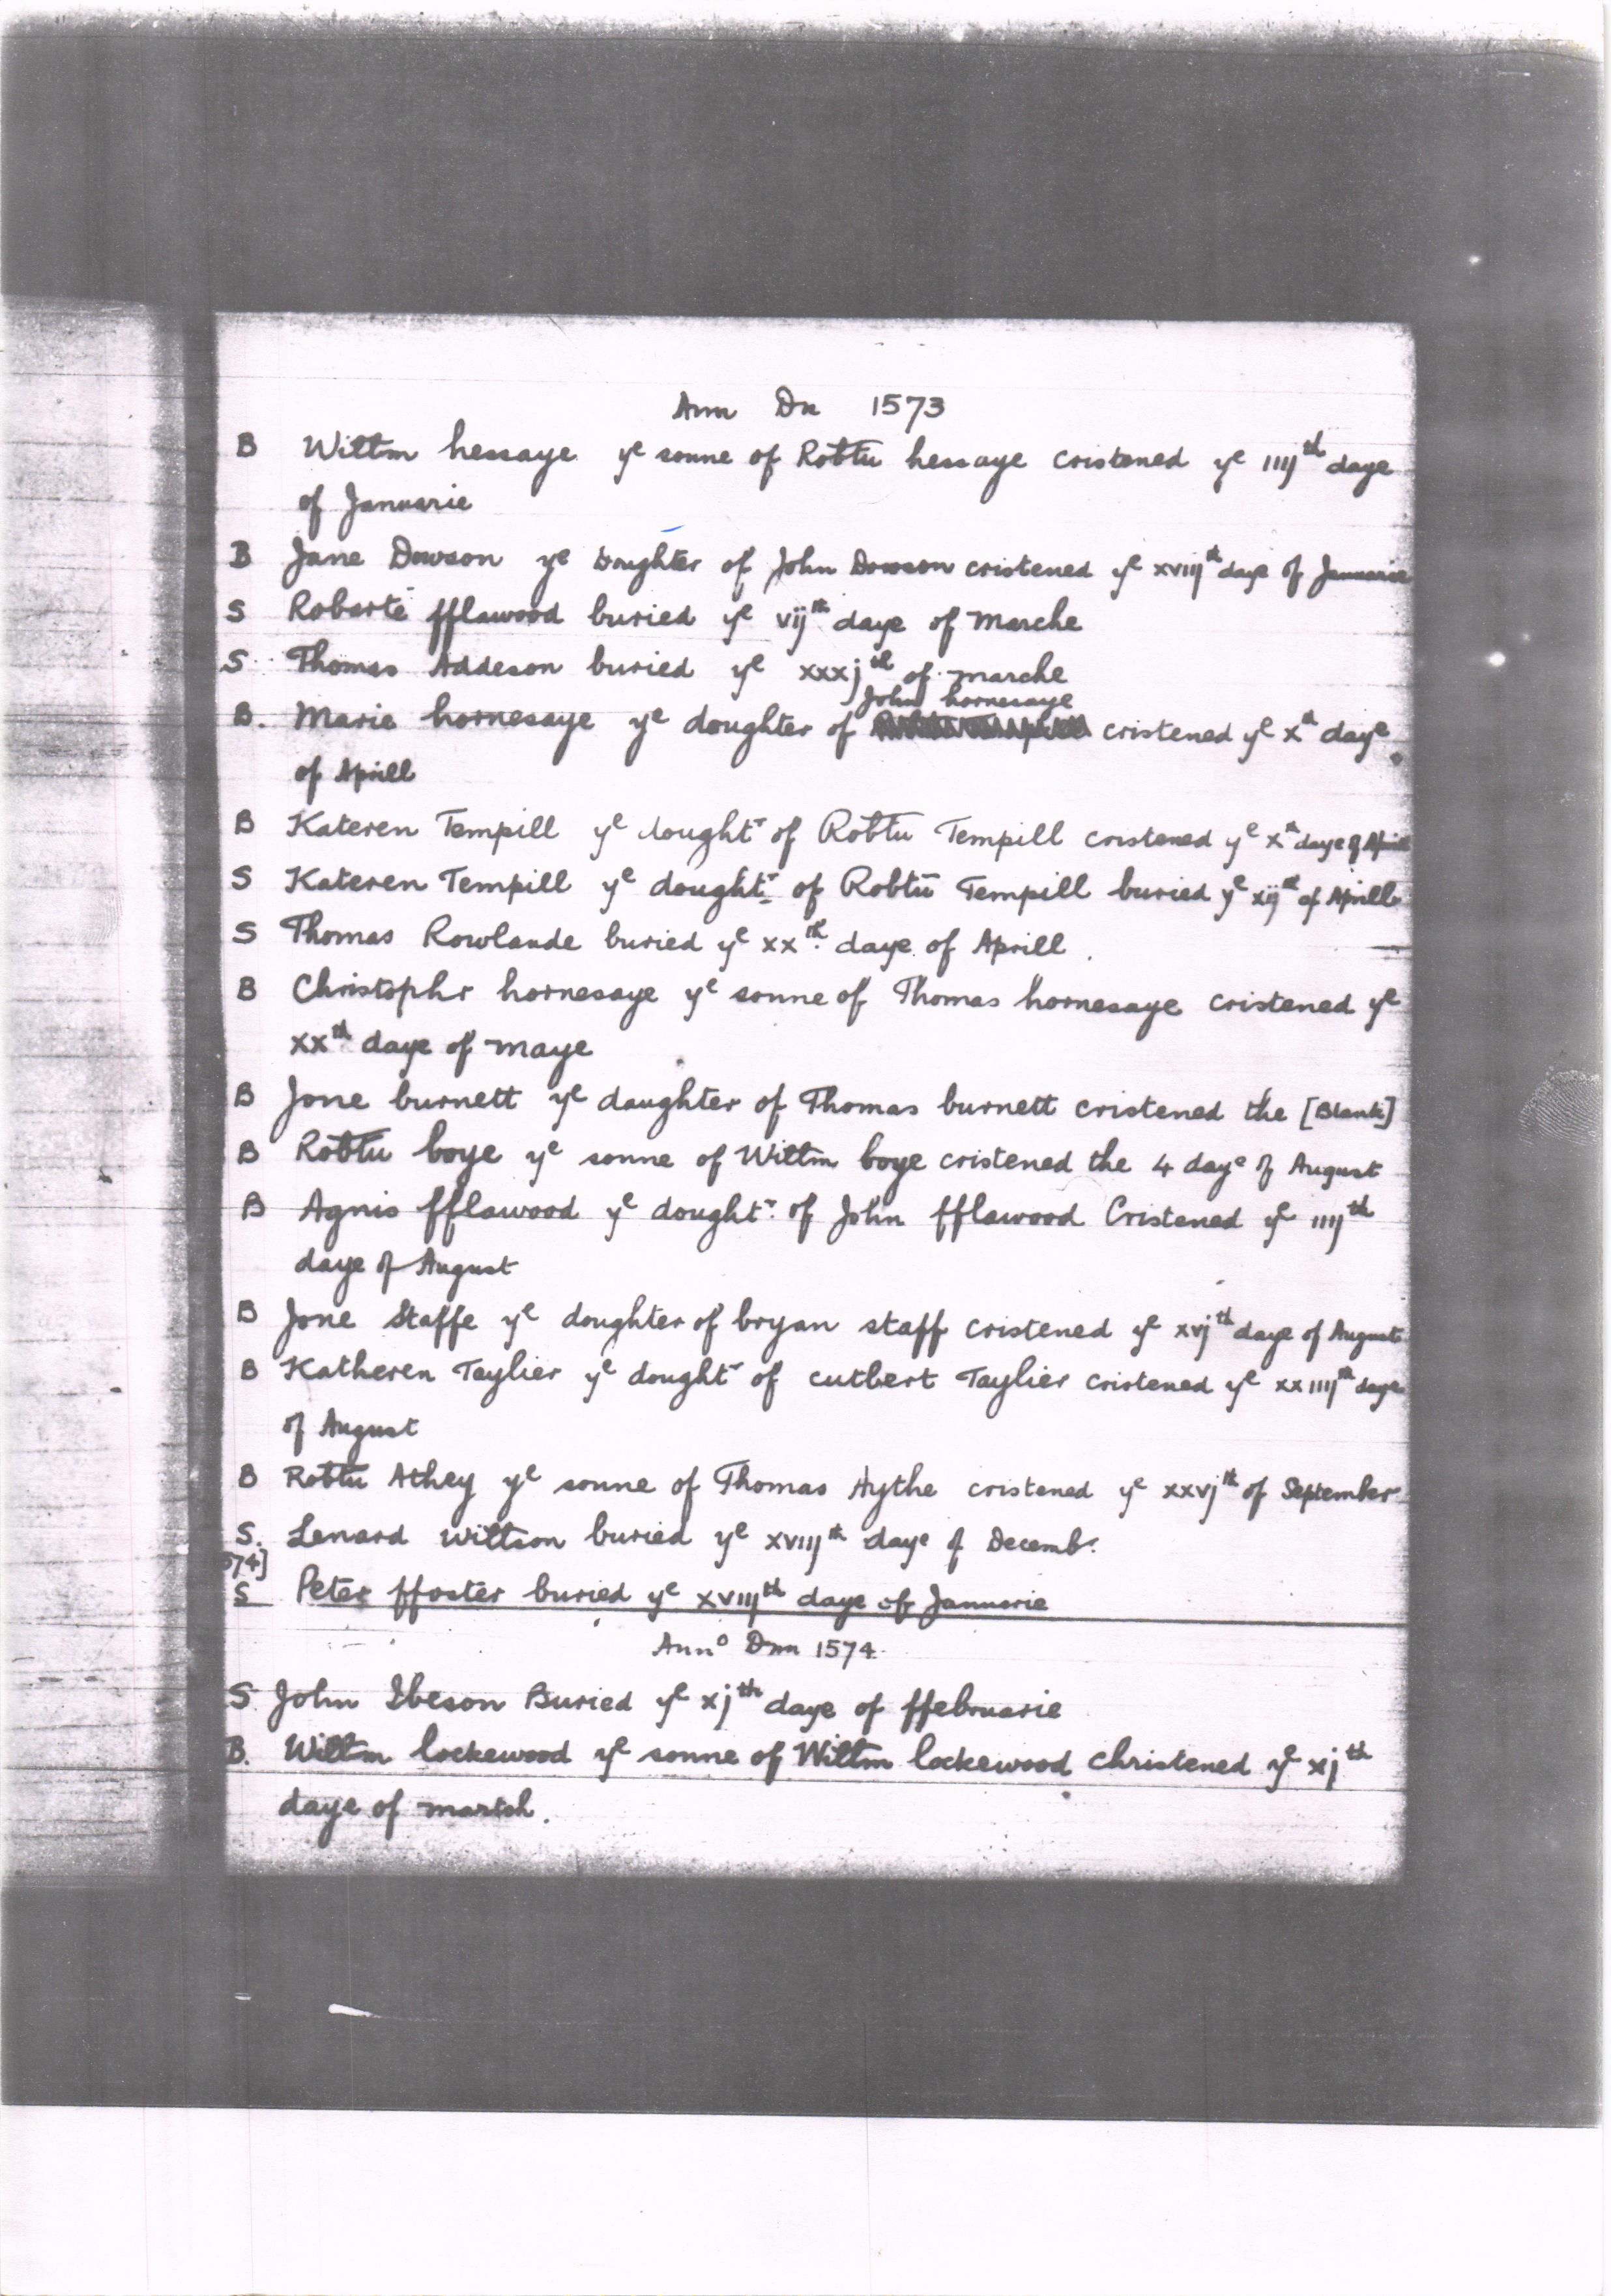 Ann Dn 1573
B Willm hessaye ye sonne of Robtu hessaye cristened ye iiijth daye
of Januarie
B Jane Dowson ye Doughter of John Dowson cristened ye xviijth daye of Januarie
S Robarte fflawood buried ye vijth daye of Marche
S Thomas Addeson buried ye xxxjth of marche
John hornesaye
B. Marie hornesaye ye doughter of cristened ye xth daye
of Aprill
B Kateren Tempill ye dought^r of Robtu Tempill cristened ye xth daye of Aprill
S Kateren Tempill ye dought^r of Robtu Tempill buried ye xijth of Aprill
S Thomas Rowlande buried ye xxth daye of Aprill.
B Christophr hornesaye ye sonne of Thomas hornesaye cristened ye
xxth daye of maye
B Jone burnett ye daughter of Thomas burnett cristened the [Blank]
B Robtu boye ye sonne of Willm boye cristened the 4 daye of August
B Agnis fflawood ye dought^r of John fflawood Cristened ye iiijth
daye of August
B Jone Staffe ye doughter of bryan staff cristened ye xvjth daye of August
B Katheren Taylier ye dought^r of cutbert Taylier cristened ye xxiiijth daye
of August
B Robtu Athey ye sonne of Thomas Aythe cristened ye xxvjth of September
S. Lenard Willson buried ye xviijth daye of Decemb^r.
574]
S Peter ffoster buried ye xviijth daye of Januarie
Anno Dmn 1574
S John Ibeson Buried ye xjth daye of ffebruarie
B. Willm lockewood ye sonne of Willm lockewood christened ye xjth
daye of martch.